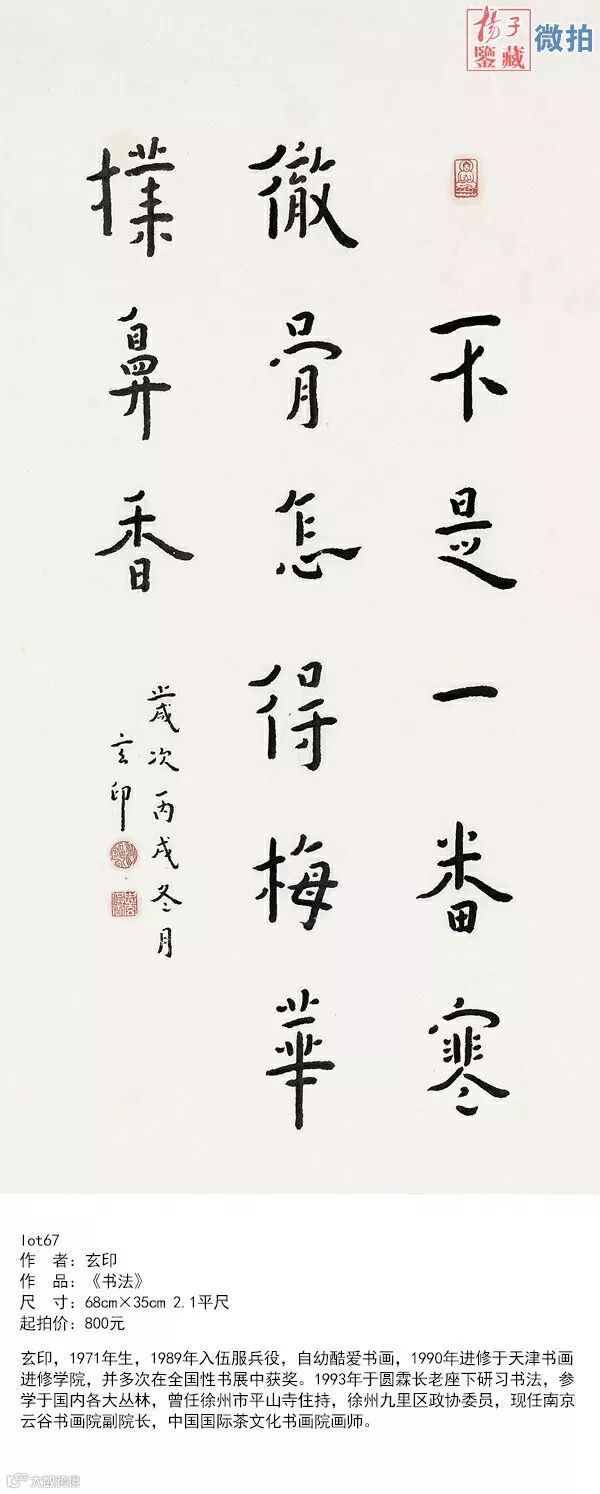 揚子
鑒藏
微拍
不是一番寒
徹骨怎得梅華
撲鼻香
歲次丙戌冬月
玄印
lot67
作 者：玄印
作 品：《书法》
尺 寸：68cm×35cm 2.1平尺
起拍价：800元
玄印，1971年生，1989年入伍服兵役，自幼酷爱书画，1990年进修于天津书画
进修学院，并多次在全国性书展中获奖。1993年于圆霖长老座下研习书法，参
学于国内各大丛林，曾任徐州市平山寺住持，徐州九里区政协委员，现任南京
云谷书画院副院长，中国国际茶文化书画院画师。
大数跨境